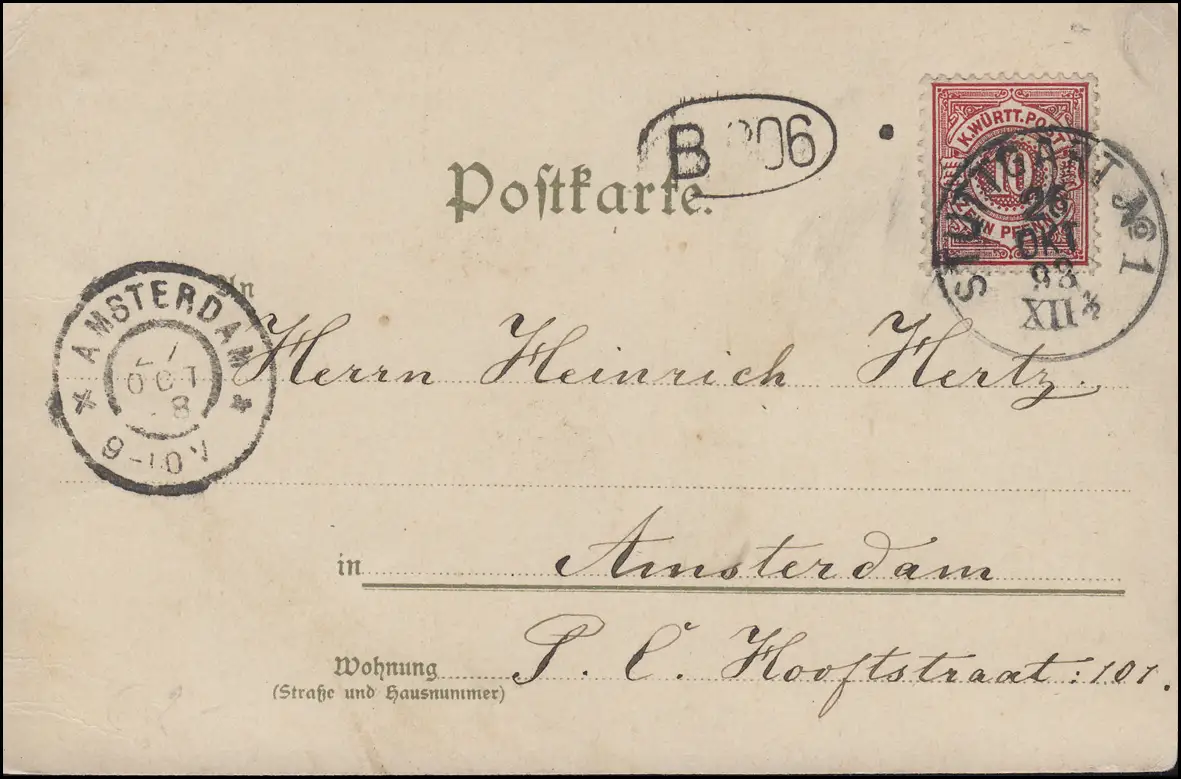 K. WÜRTT. POST
10
ZEHN PFENNIG
STUTTGART No 1
26
OKT
98
XII
B 306
Poſtkarte.
AMSTERDAM
27
OCT
8
9-10 V
An
Herrn Heinrich Hertz.
in Amsterdam
Wohnung P. C. Hooftstraat: 101.
(Straße und Hausnummer)